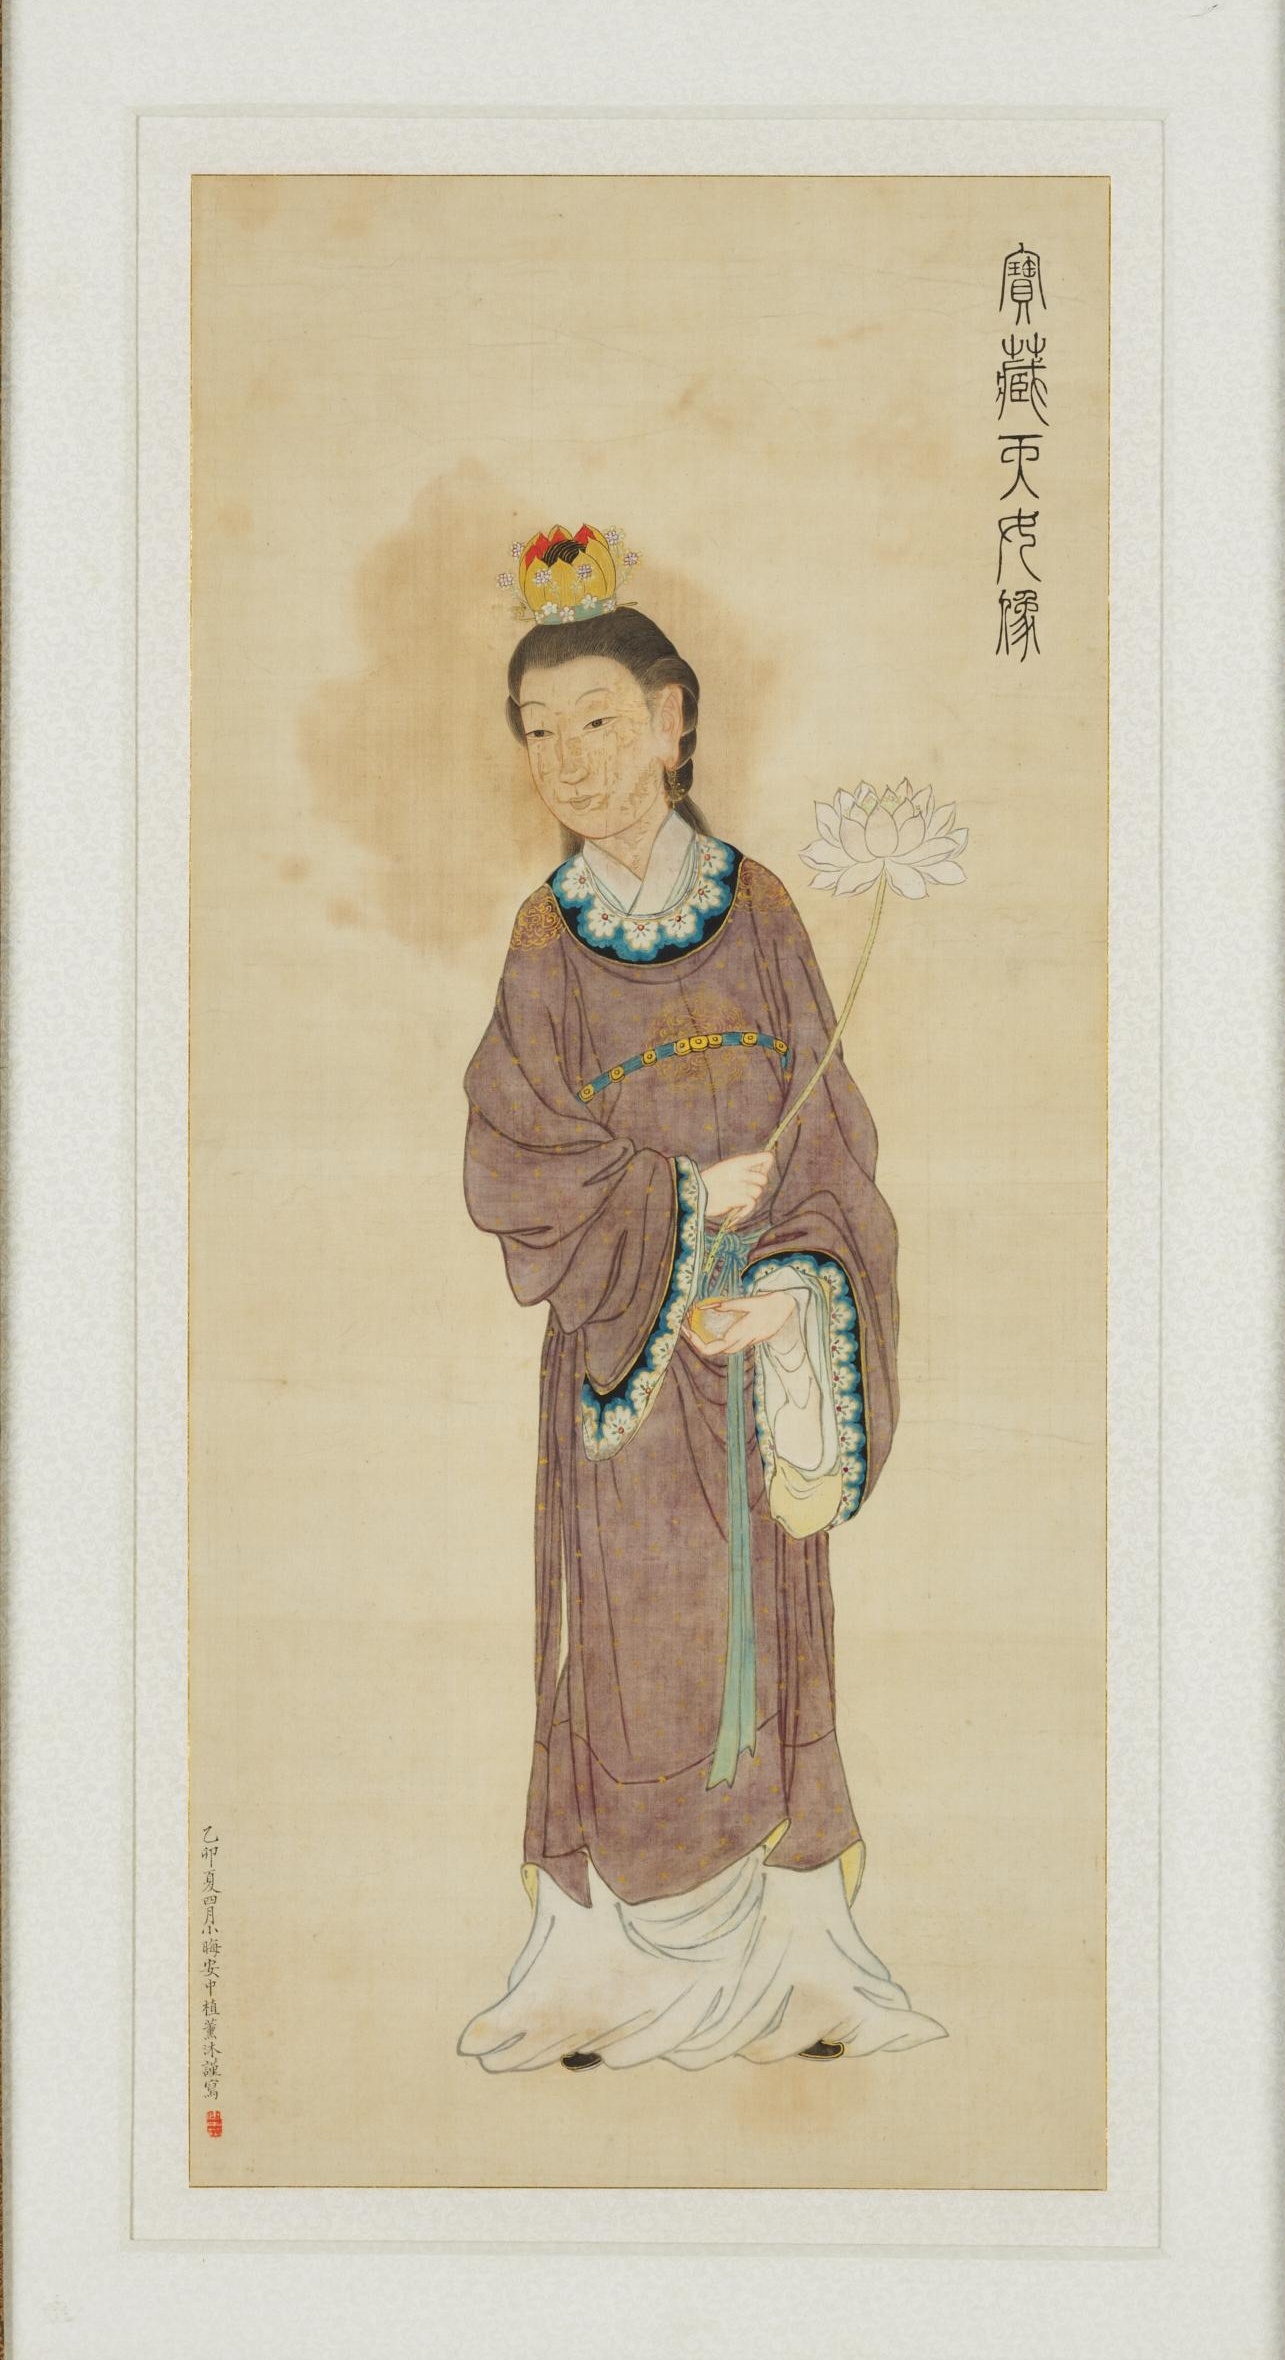 寶藏天女像
乙卯夏四月小晦安中植薰沐謹寫